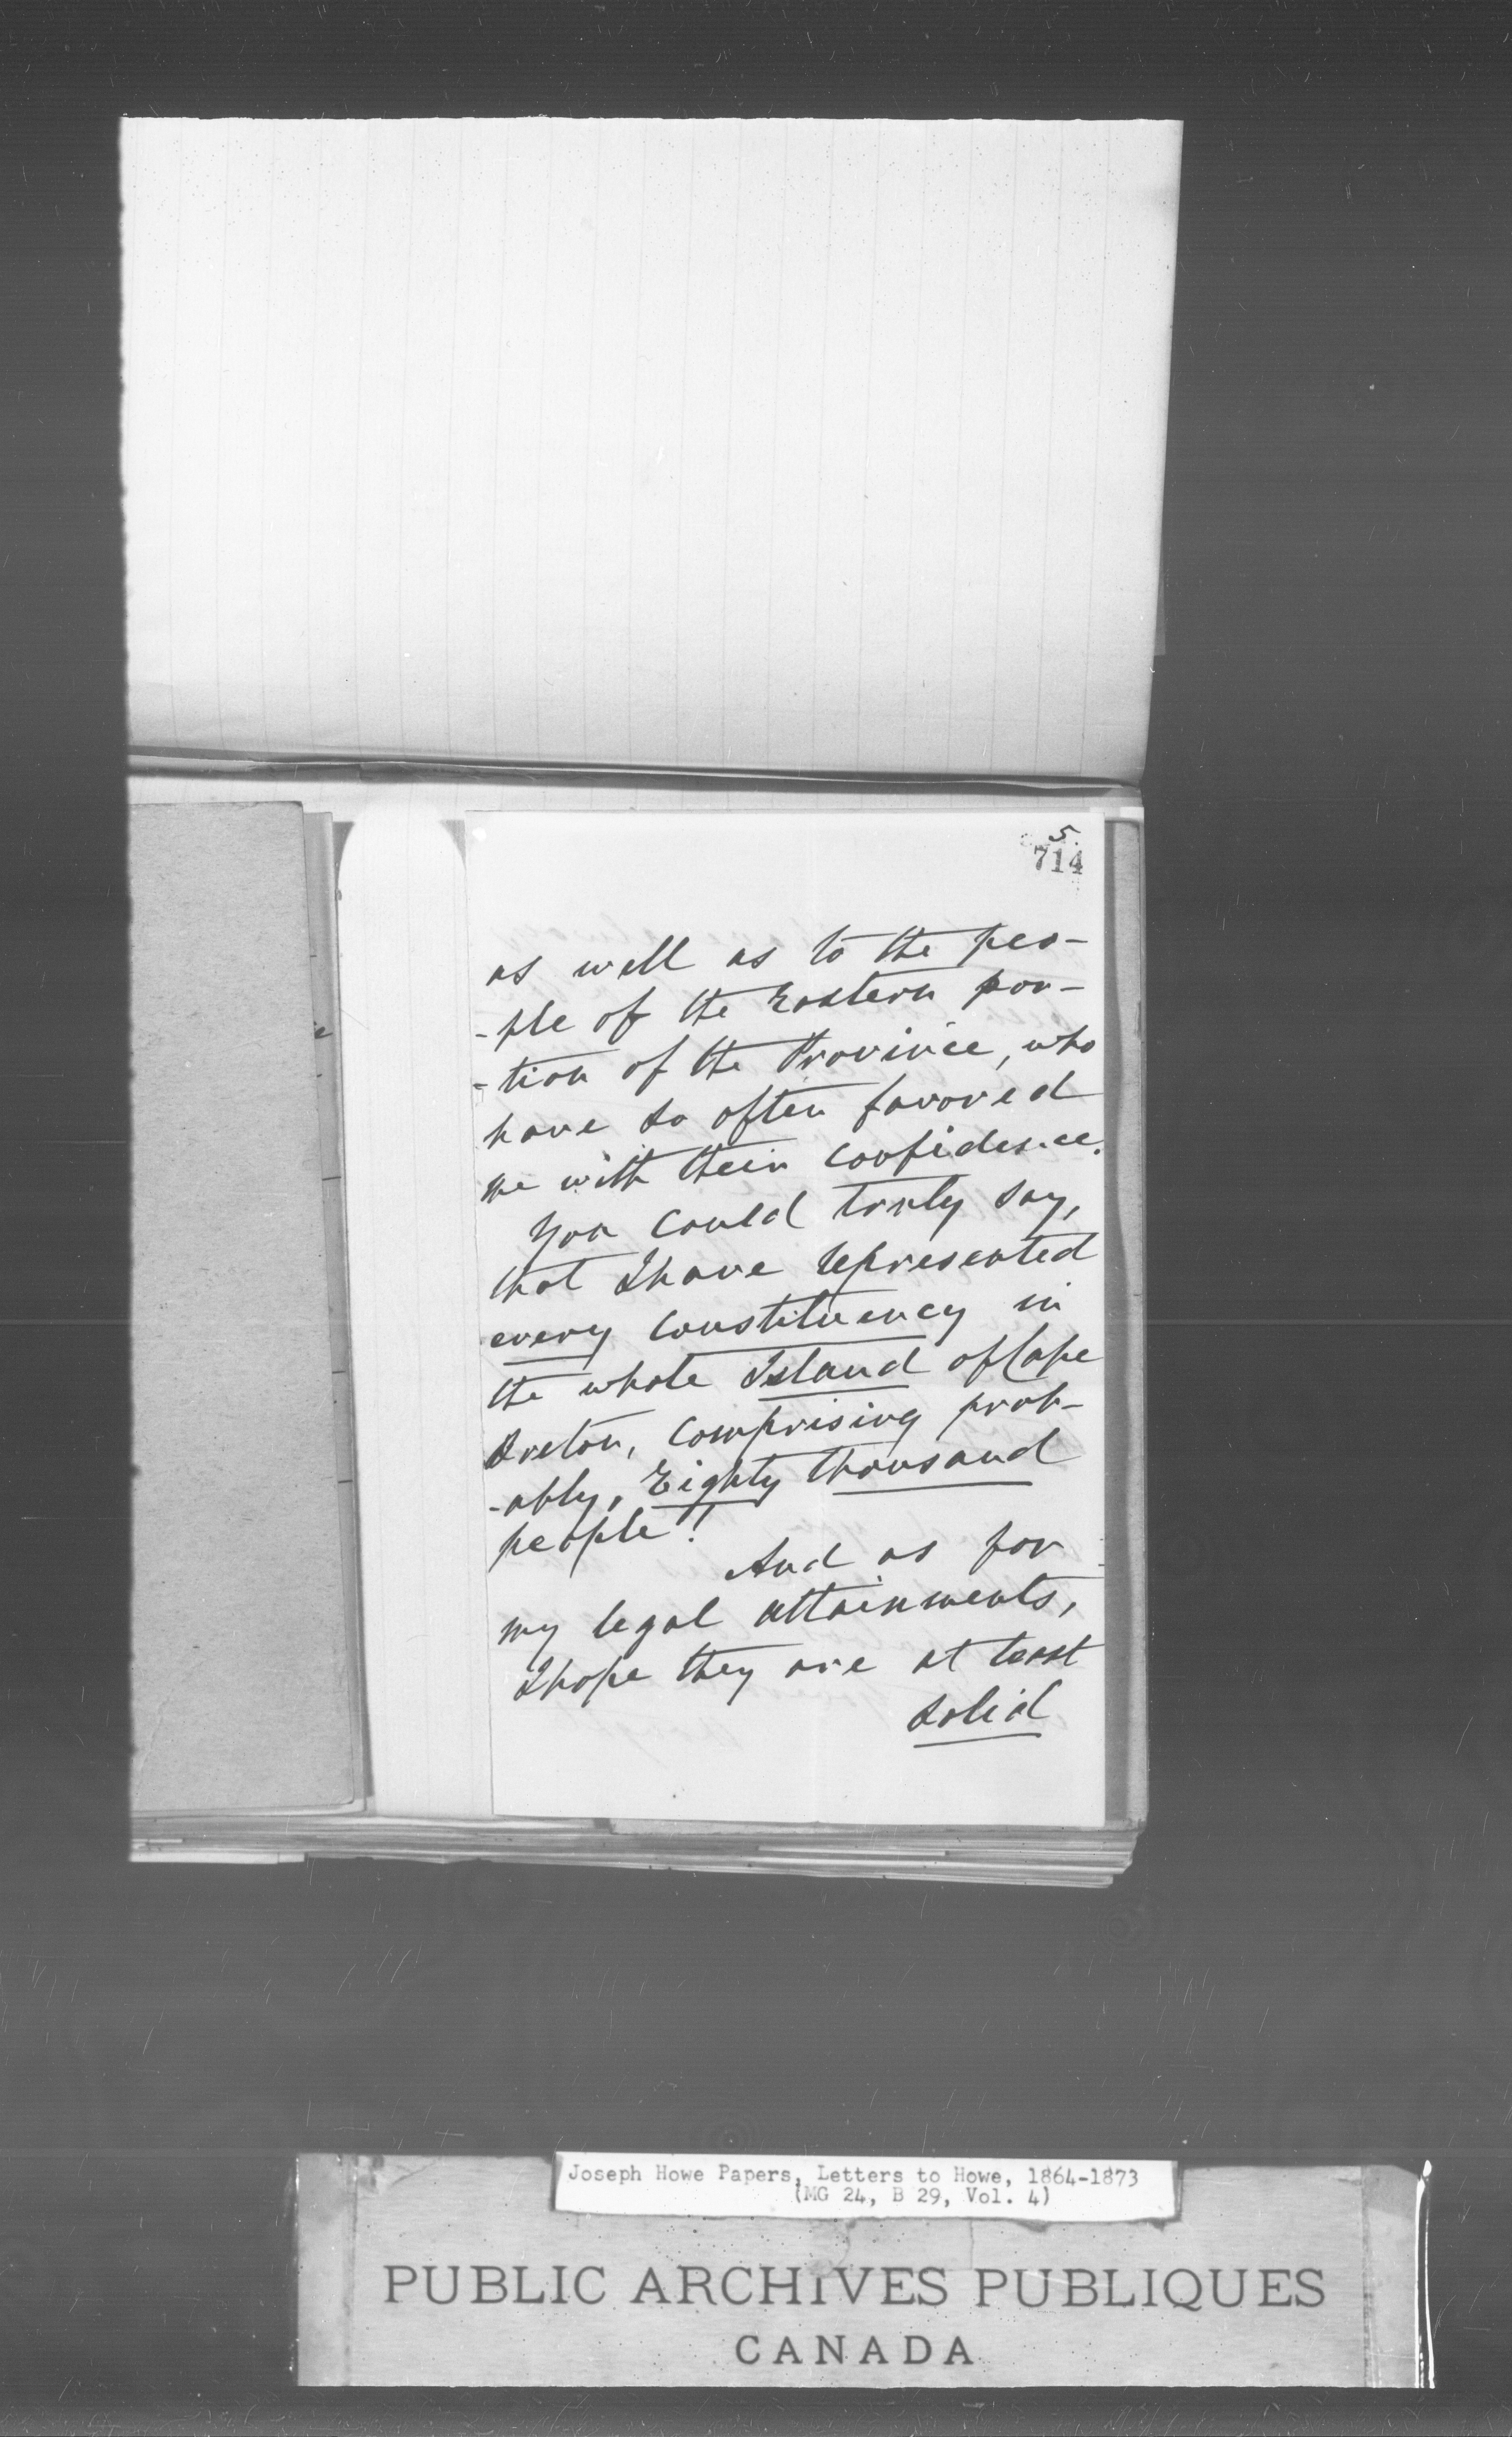 5.
714
as well as to the peo-
-ple of the Eastern por-
-tion of the Province, who
have so often favored
me with their confidence.
You could truly say,
that I have represented
every constituency in
the whole Island of Cape
Breton, comprising prob-
-ably, Eighty thousand
people!
And as for
my legal attainments,
I hope they are at least
solid
Joseph Howe Papers, Letters to Howe, 1864-1873
(MG 24, B 29, Vol. 4)
PUBLIC ARCHIVES PUBLIQUES
CANADA